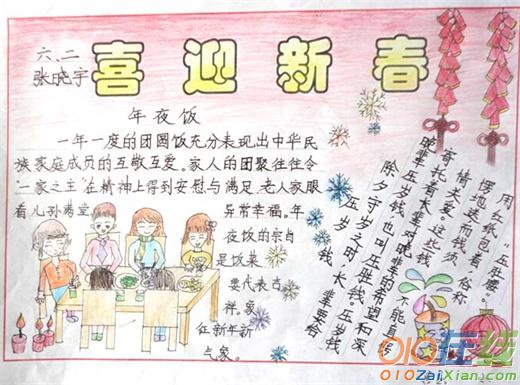 喜迎新春
六、二
张晓宇
年夜饭
一年一度的团圆饭充分表现出中华民
族家庭成员的互敬互爱。家人的团聚往往令
"一家之主"在精神上得到安慰与满足。老人家眼
看儿孙满堂 异常幸福。年
夜饭的宗旨
是饭菜
要代表吉
祥。象
征新年新
气象。
压岁钱
除夕守岁之时,长辈要给
晚辈压岁钱,也叫压胜钱,压岁钱
寄托着长辈对晚辈的希望和深
情关爱。这些钱不能直愣
愣地送而钱须
用红纸包着,俗称
"压肚腰"。
010在线
010ZaiXian.com